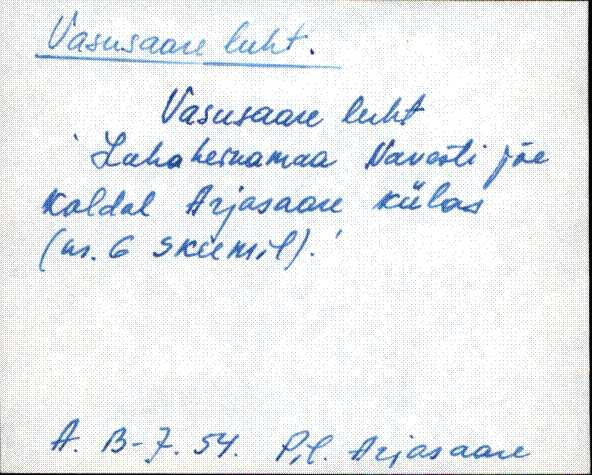 Vasusaare luht.
Vasusaare luht
'Luhaheinamaa Navesti jõe
kaldal Arjasaare külas
(nr. 6 skeemil).'
A. B-7. 54. Pil. Arjasaare